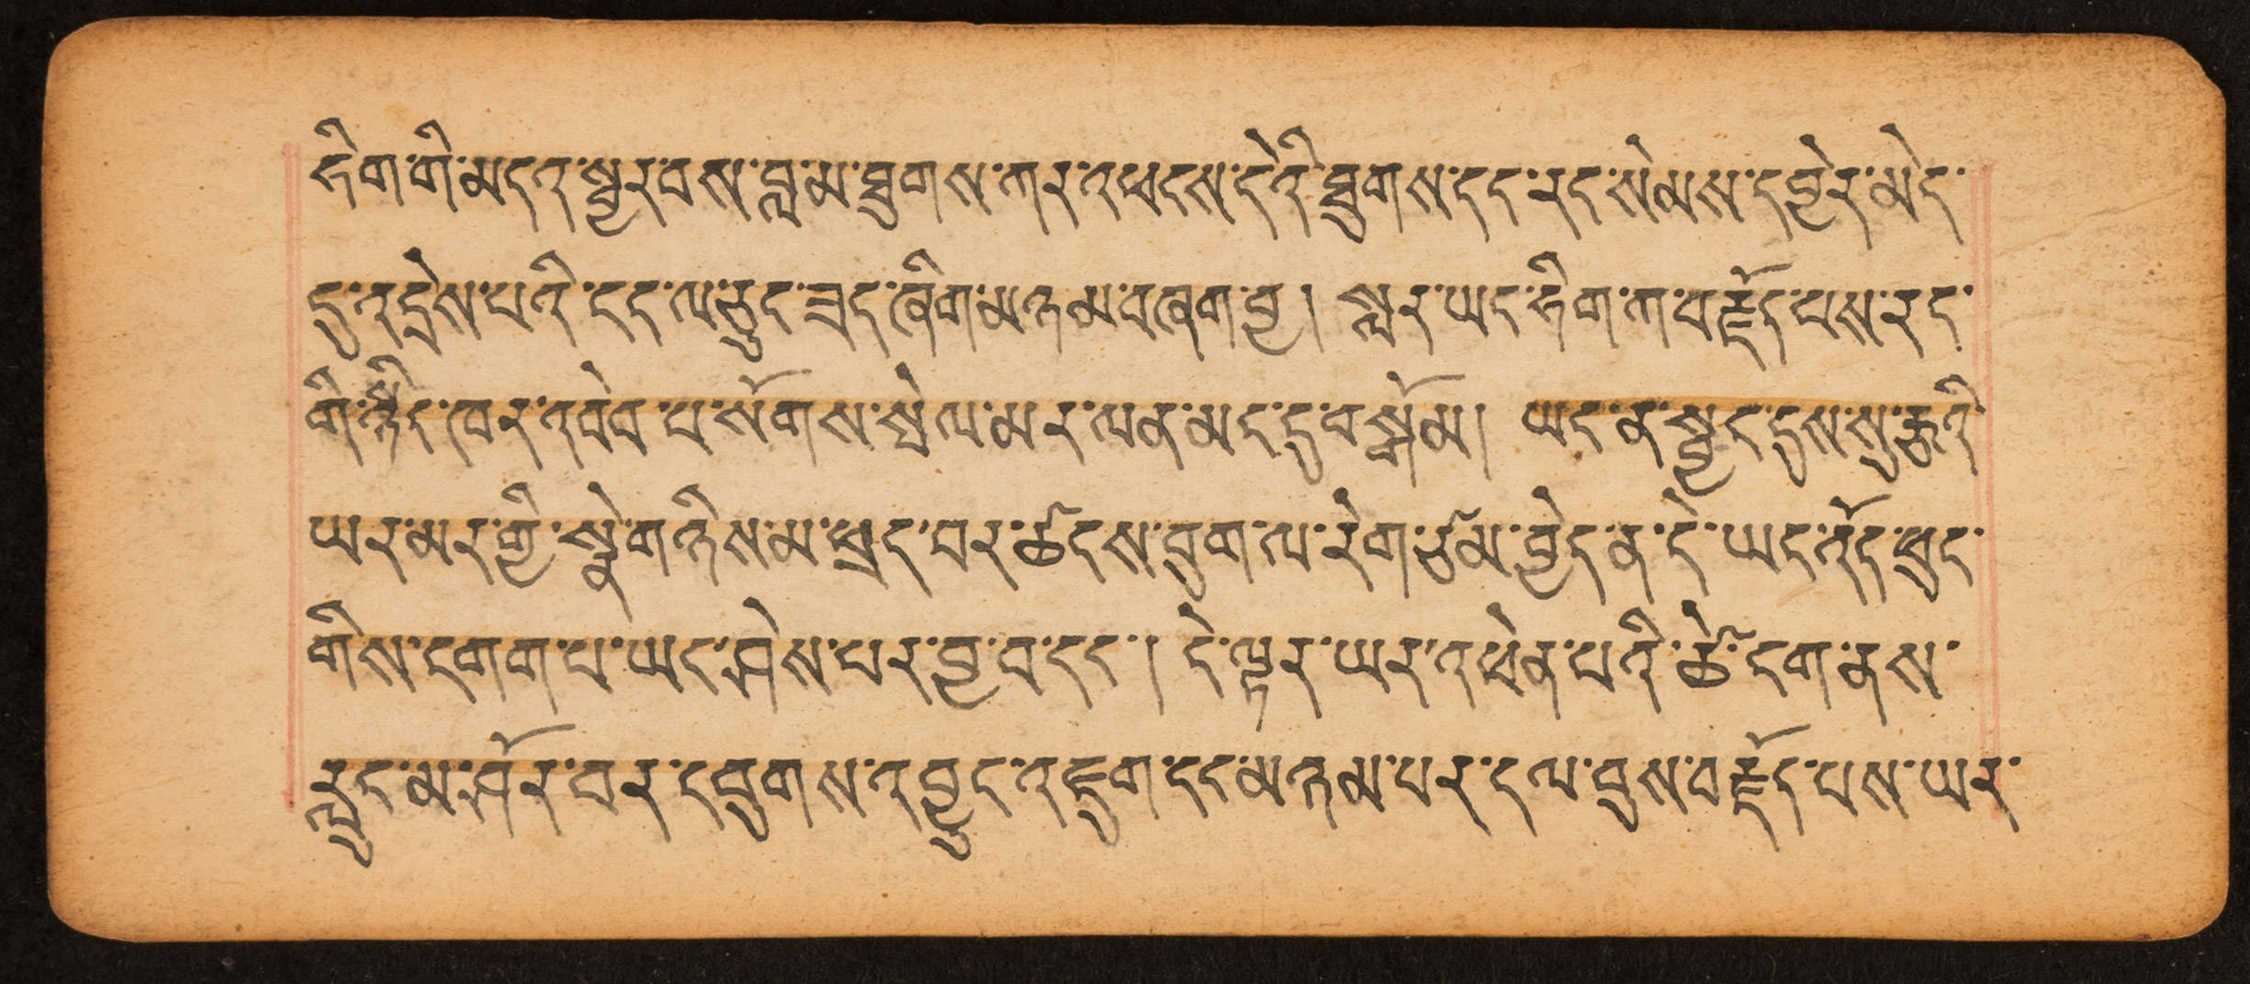 ཧིག་གི་མདའ་སྦྱར་བས་བླ་མ་ཐུགས་ཀར་འཕངས་དེའི་ཐུགས་དང་རང་སེམས་དབྱེར་མེད་
དུ་འདྲེས་པའི་ངང་ལ་ཅུང་ཟད་ཞིག་མཉམ་བཞག་བྱ། སླར་ཡང་ཧིག་ཀ་བརྗོད་པས་རང་
གི་སྙིང་ཁར་འབེབ་པ་སོགས་སྤེལ་མར་ལན་མང་དུ་བསྒོམ། ཡང་ན་སྦྱང་དུས་སུ་རྩའི་
ཡར་མར་གྱི་སྣེ་གཉིས་མ་ཕྲད་པར་ཚངས་བུག་ལ་རེག་ཙམ་བྱེད་ན་དེ་ཡང་ཧོང་ཕུང་
གིས་དགག་པ་ཡང་ཤེས་པར་བྱ་བ་དང་། དེ་ལྟར་ཡར་འཕེན་པའི་ཚེ་ངག་ནས་
རླུང་མ་ཤོར་བར་དབུགས་འབྱུང་འཇུག་དང་མཉམ་པར་དལ་བུས་བརྗོད་པས་ཡར་